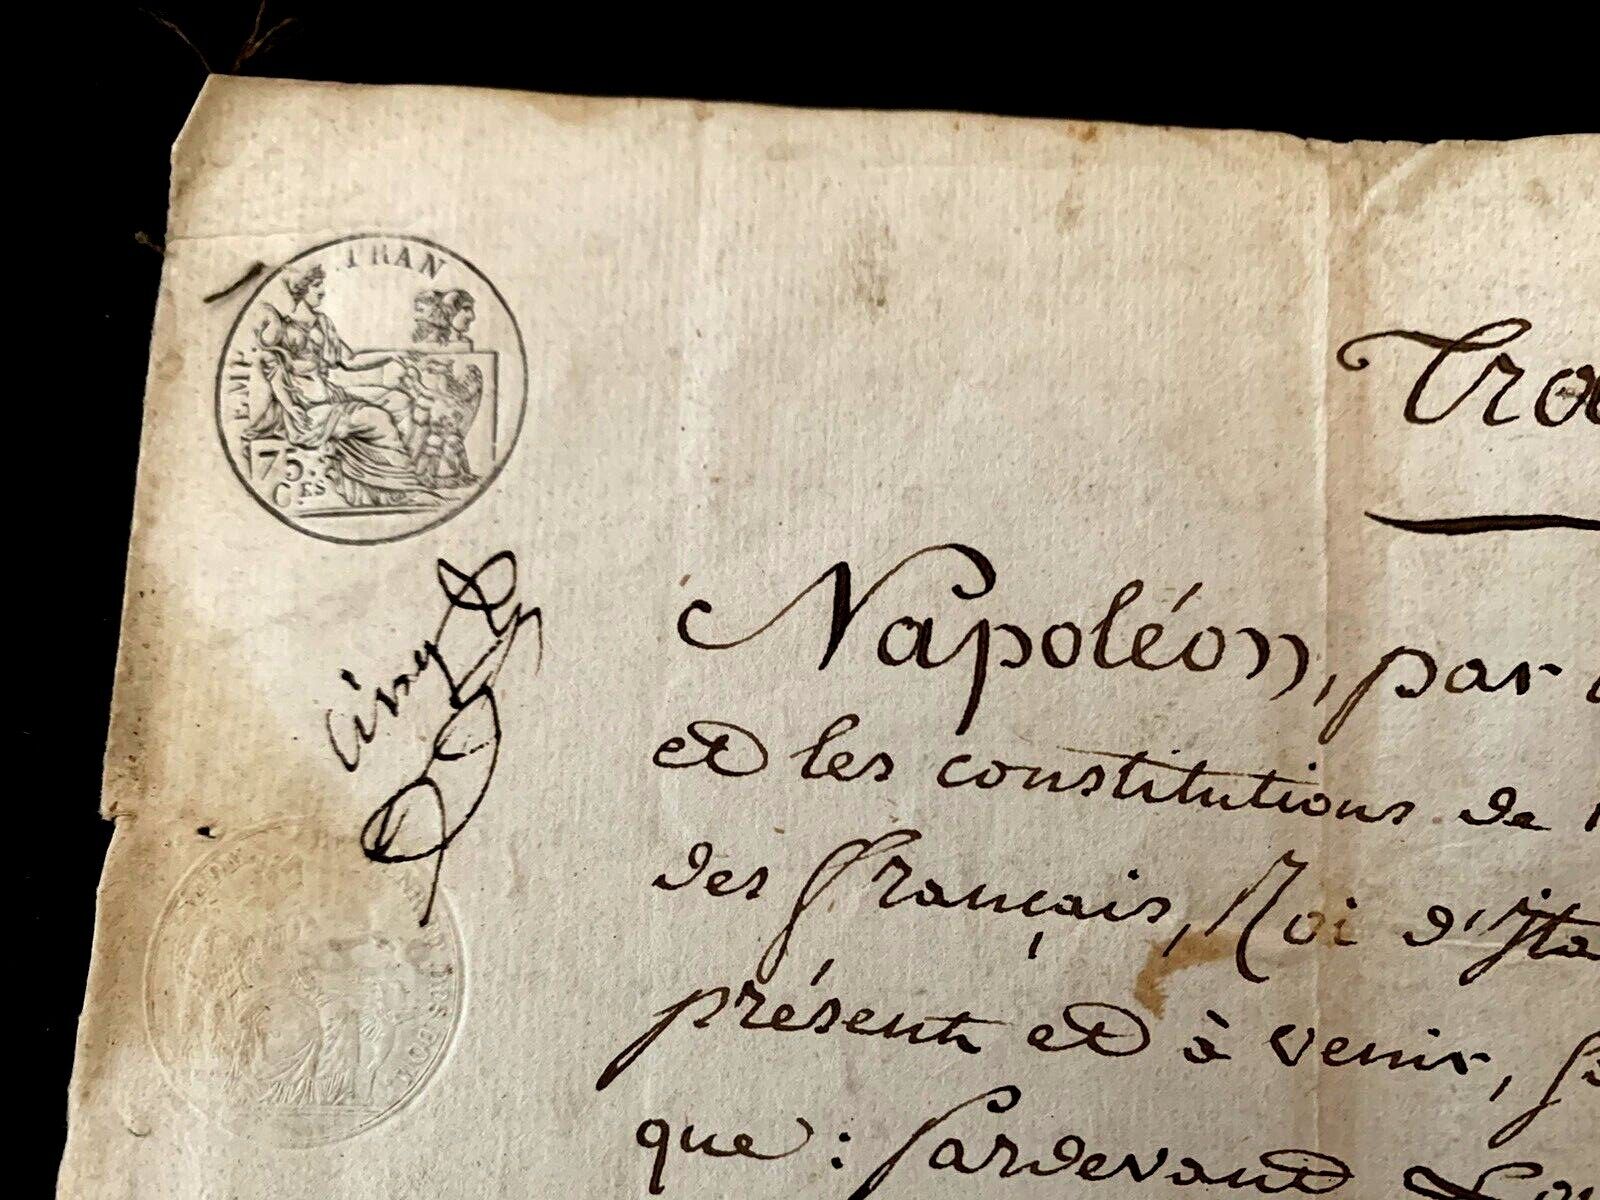 EMP. FRAN
75.
C.ES
Tra
Napoléon, par
et les constitutions de
des français, Roi d'Ita
présents et à venir, S
que : Pardevant